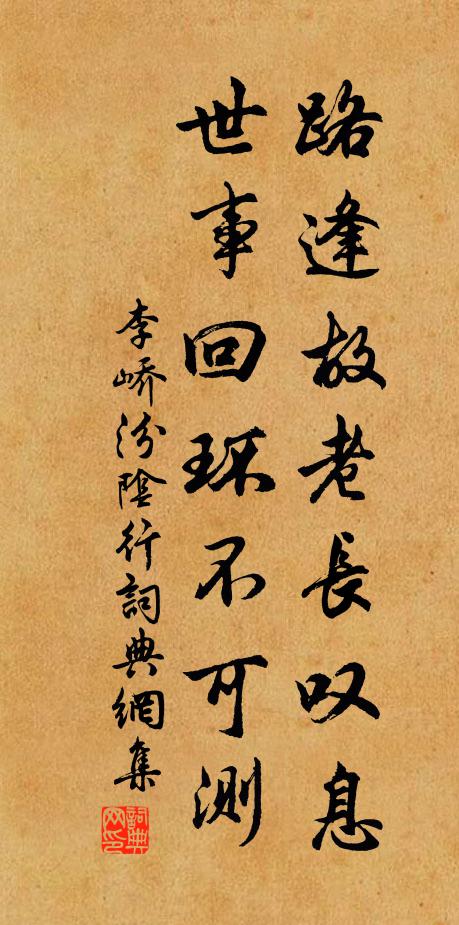 路逢故老長叹息
世事回环不可測
李嶠汾陰行詞典網集
詞典网印